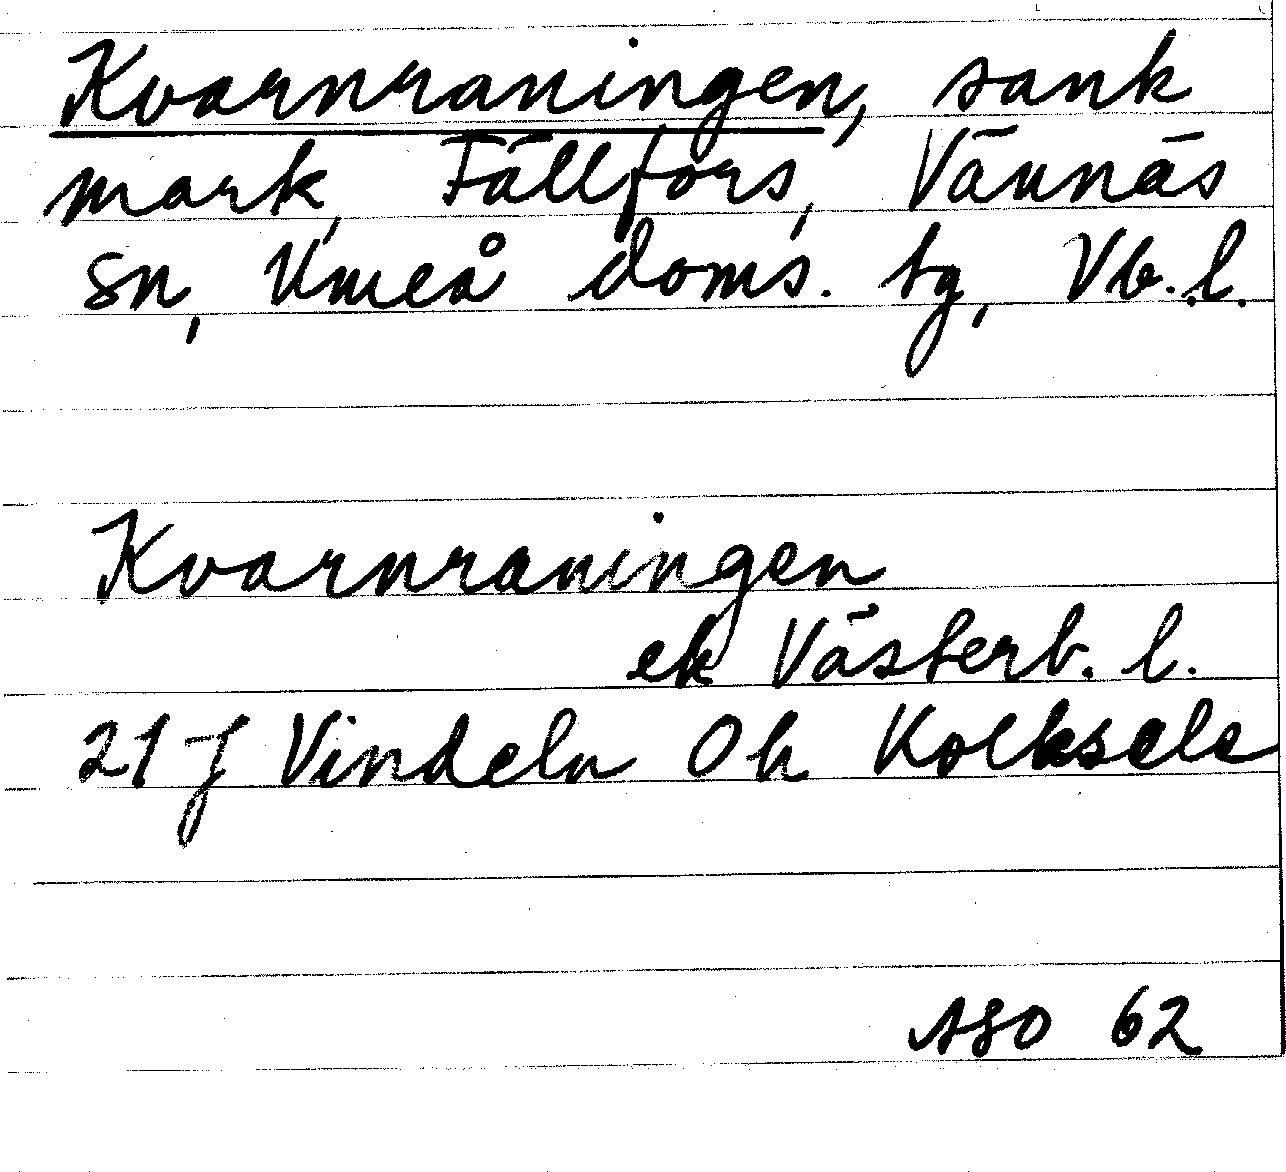 Kvarnraningen, sank
mark, Fällfors, Vännäs
sn, Umeå doms. tg, Vb. l.
Kvarnraningen
ek Västerb. l.
21 J Vindeln Ok Kolksele
ASO 62